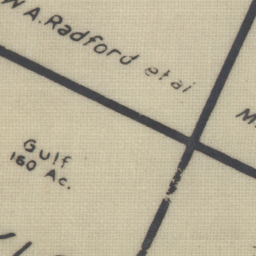 W A. Radford et al
Gulf
160 Ac.
M